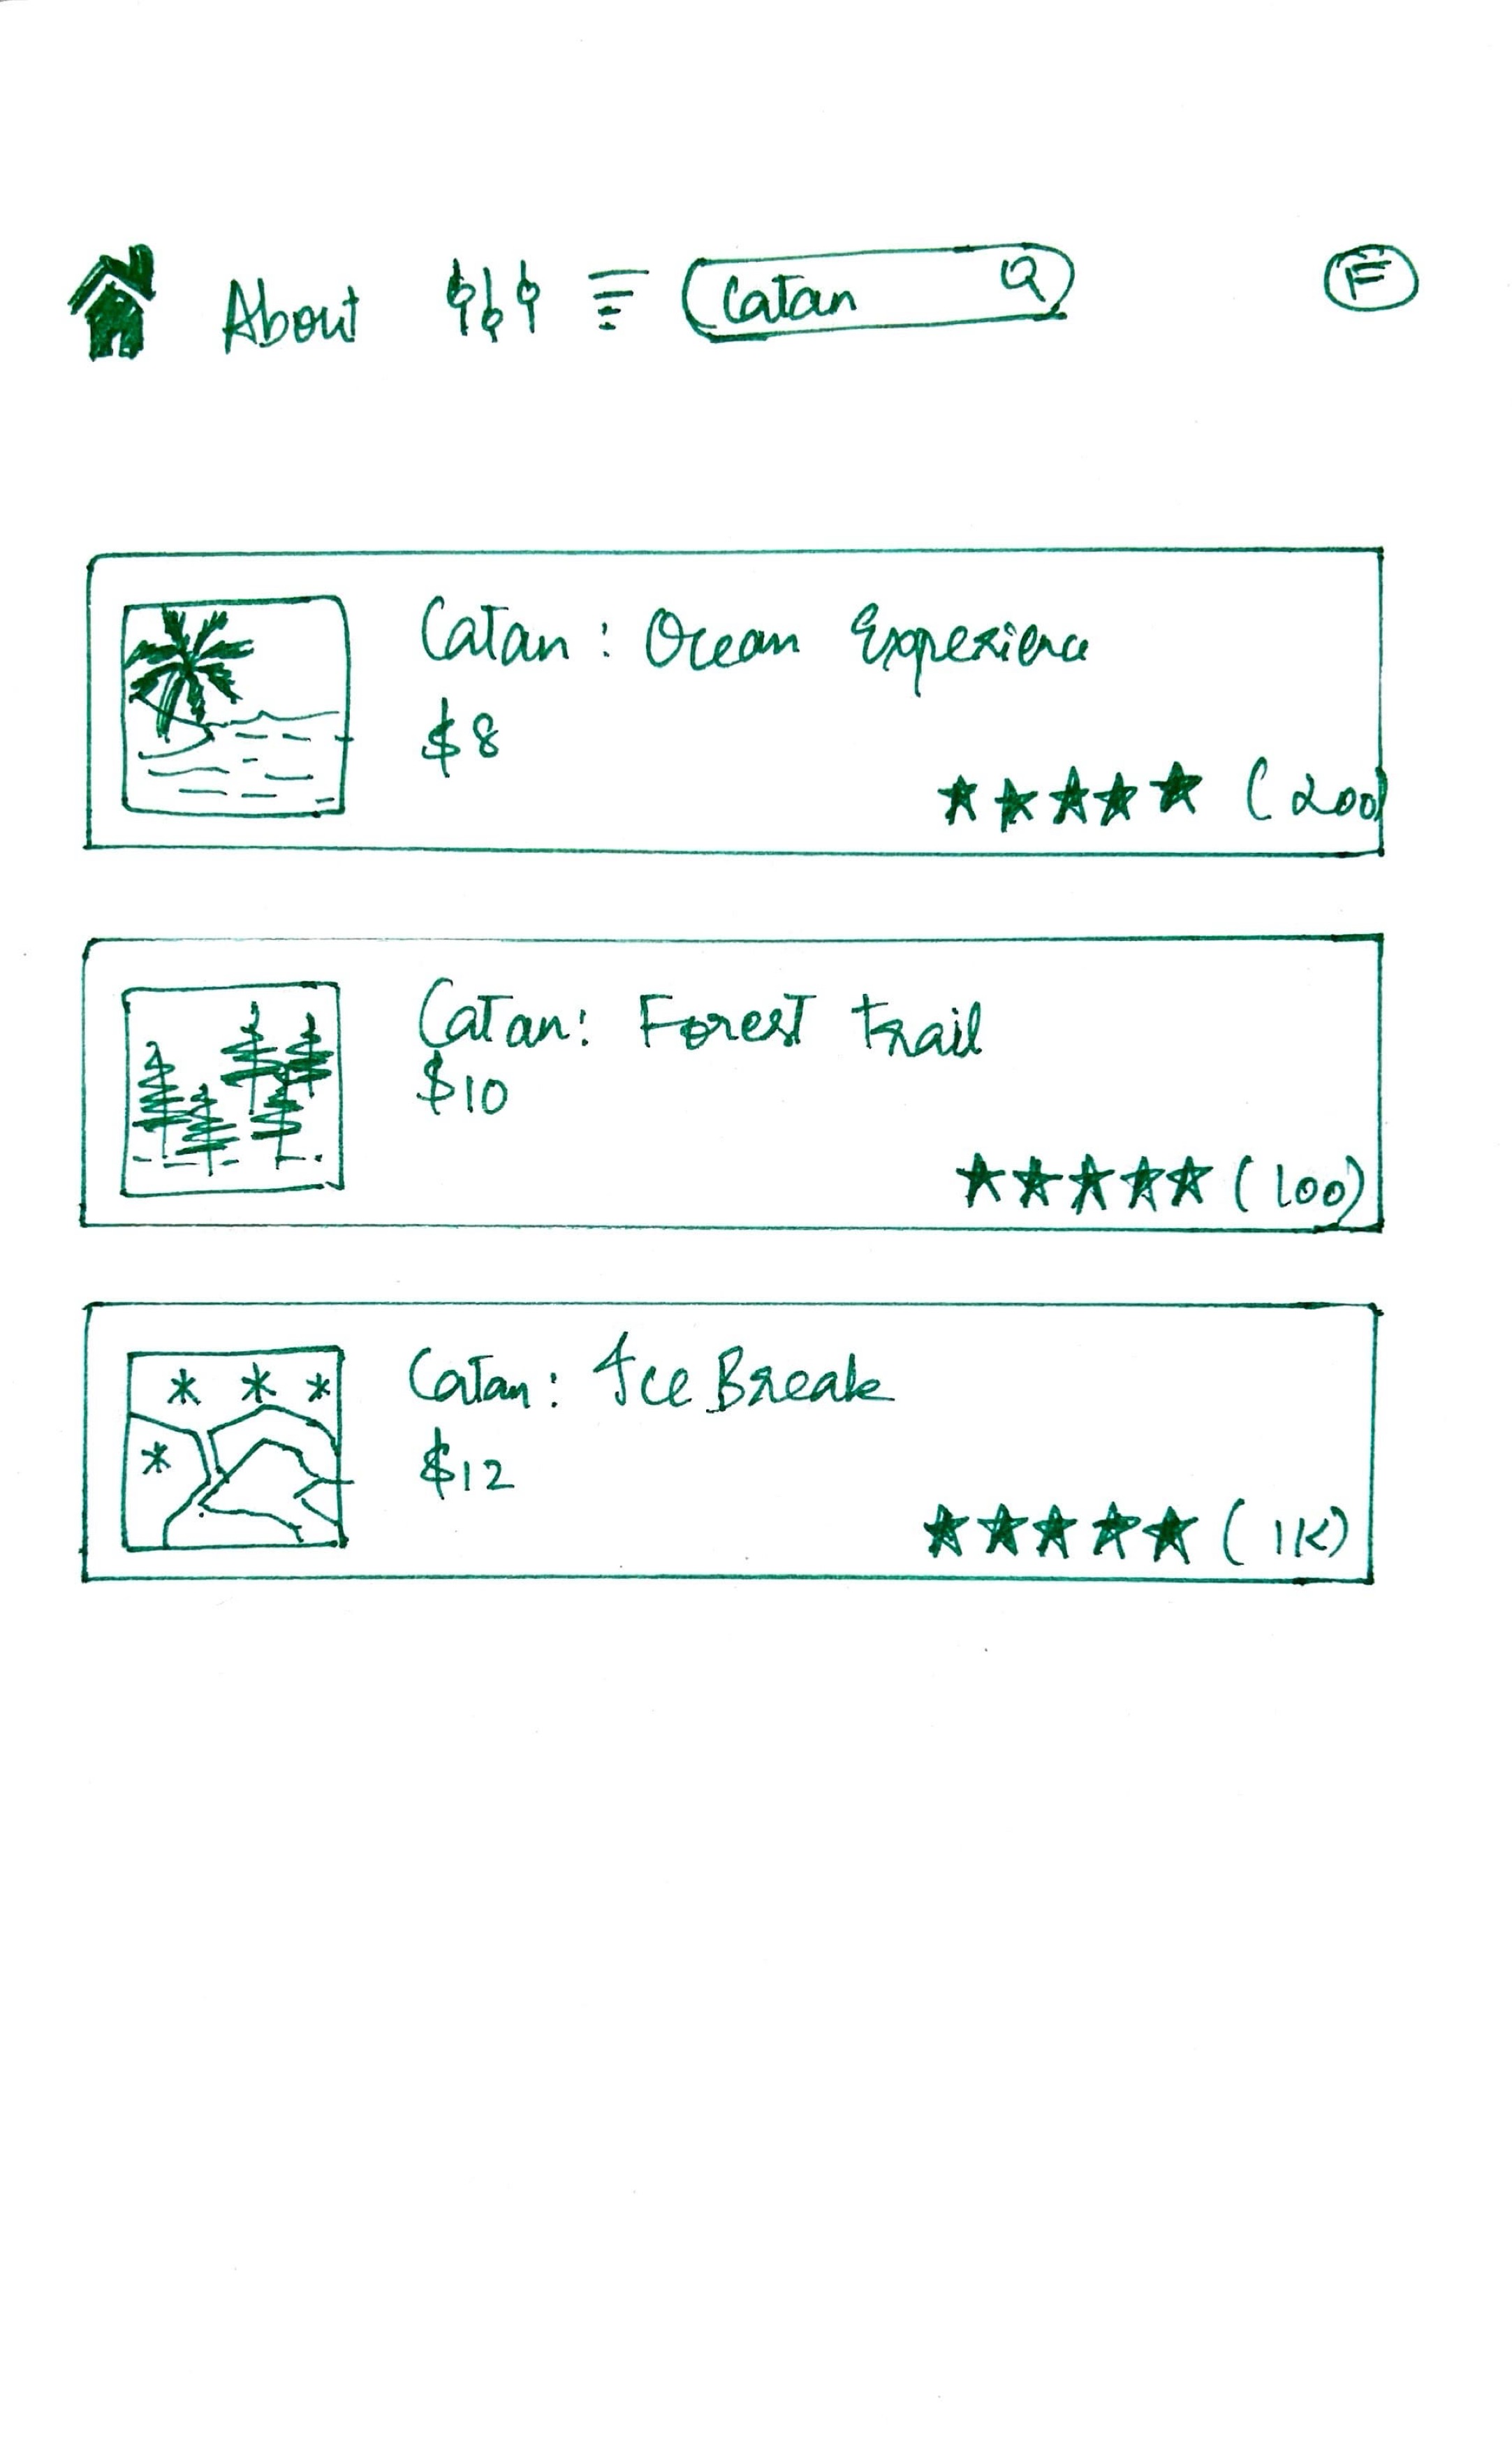 About
Catan
F
Catan: Ocean Experience
$8
(200)
Catan: Forest Trail
$10
(100)
Catan: Ice Break
$12
(1K)